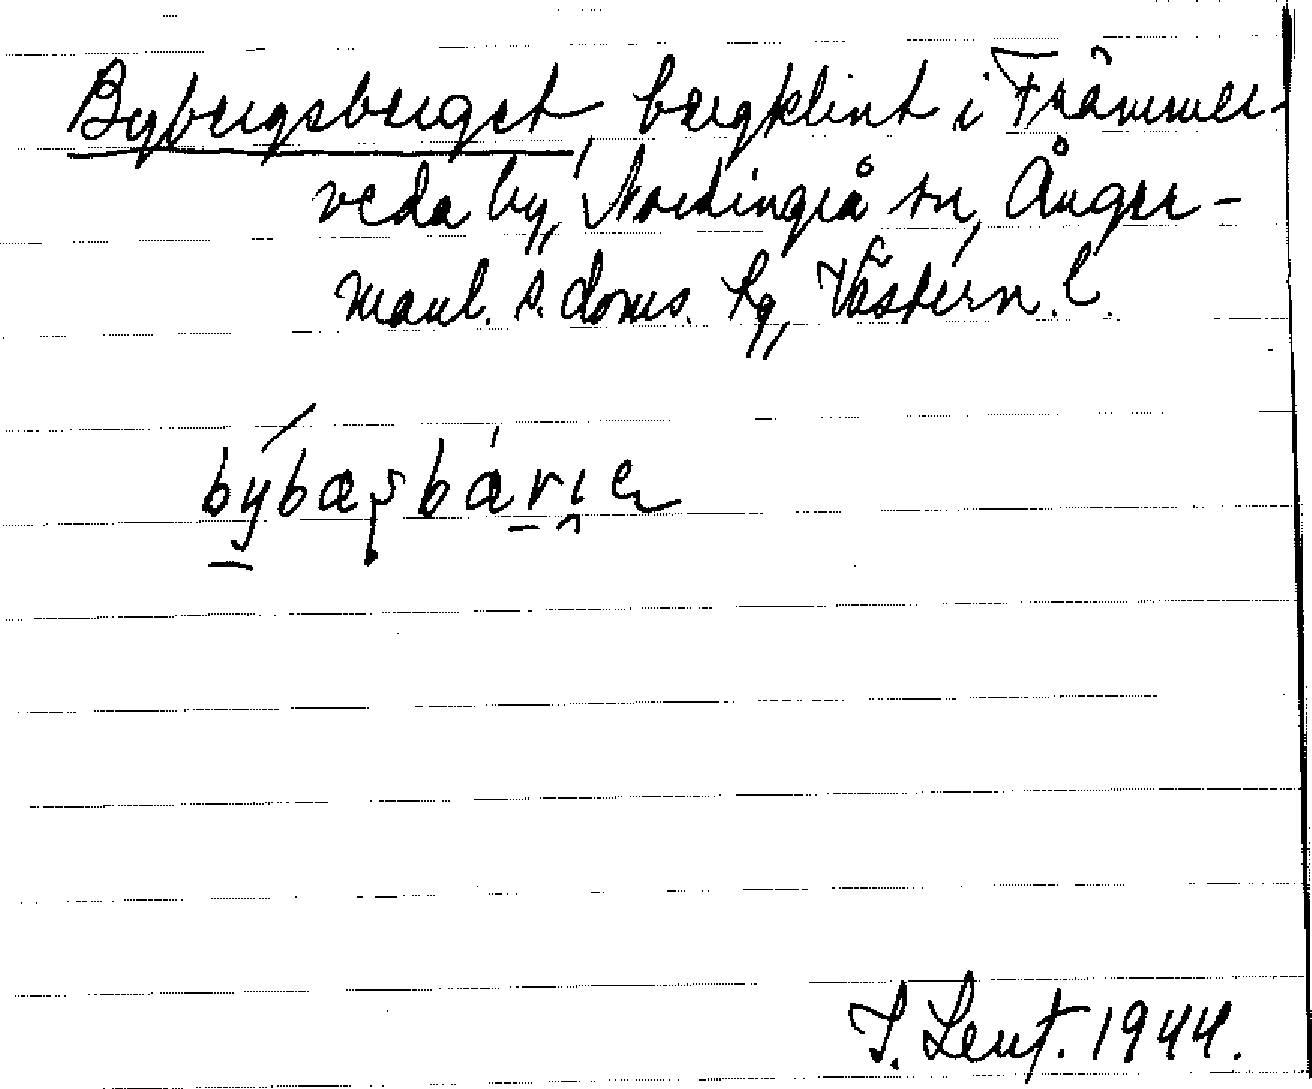 Bybergsberget, bergklint i Främmer-
veda by, Nordingrå sn, Ånger-
manl. s. doms. hg, Västern. l.
býbæʂbárıe
I. Lent. 1944.